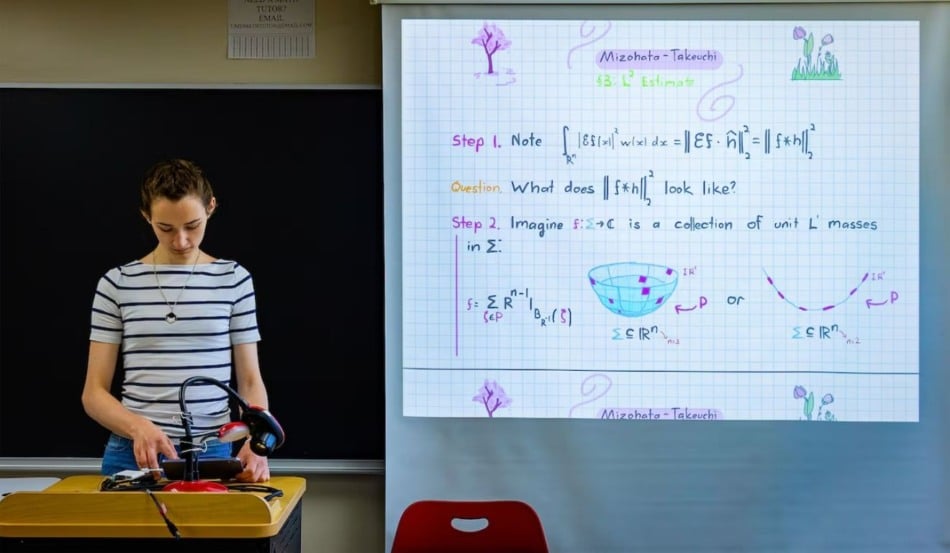 NEED A MATH
TUTOR?
EMAIL
Mizohata - Takeuchi
§3: L² Estimate
Step 1. Note ∫_{ℝⁿ} |Ef(x)|² w(x) dx = ‖Ef · ĥ‖₂² = ‖f*h‖₂²
Question. What does ‖f*h‖₂² look like?
Step 2. Imagine f: Σ→ℂ is a collection of unit L¹ masses
in Σ:
f = Σ_{ξ∈P} R^{n-1} 1_{B_{R^{-1}}(ξ)}
IR⁻¹
P
or
IR⁻¹
P
Σ ⊆ ℝⁿ n=3
Σ ⊆ ℝⁿ n=2
Mizohata - Takeuchi